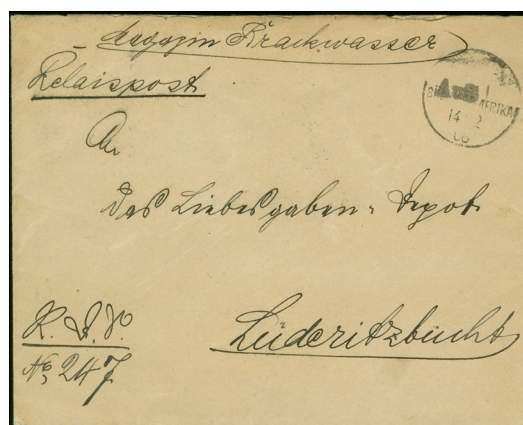 Magazin Brackwasser
Relaispost
Aus
AFRIKA
14 2
06
An
das Liebesgaben-Depot
Lüderitzbucht
K. D. S.
No 247